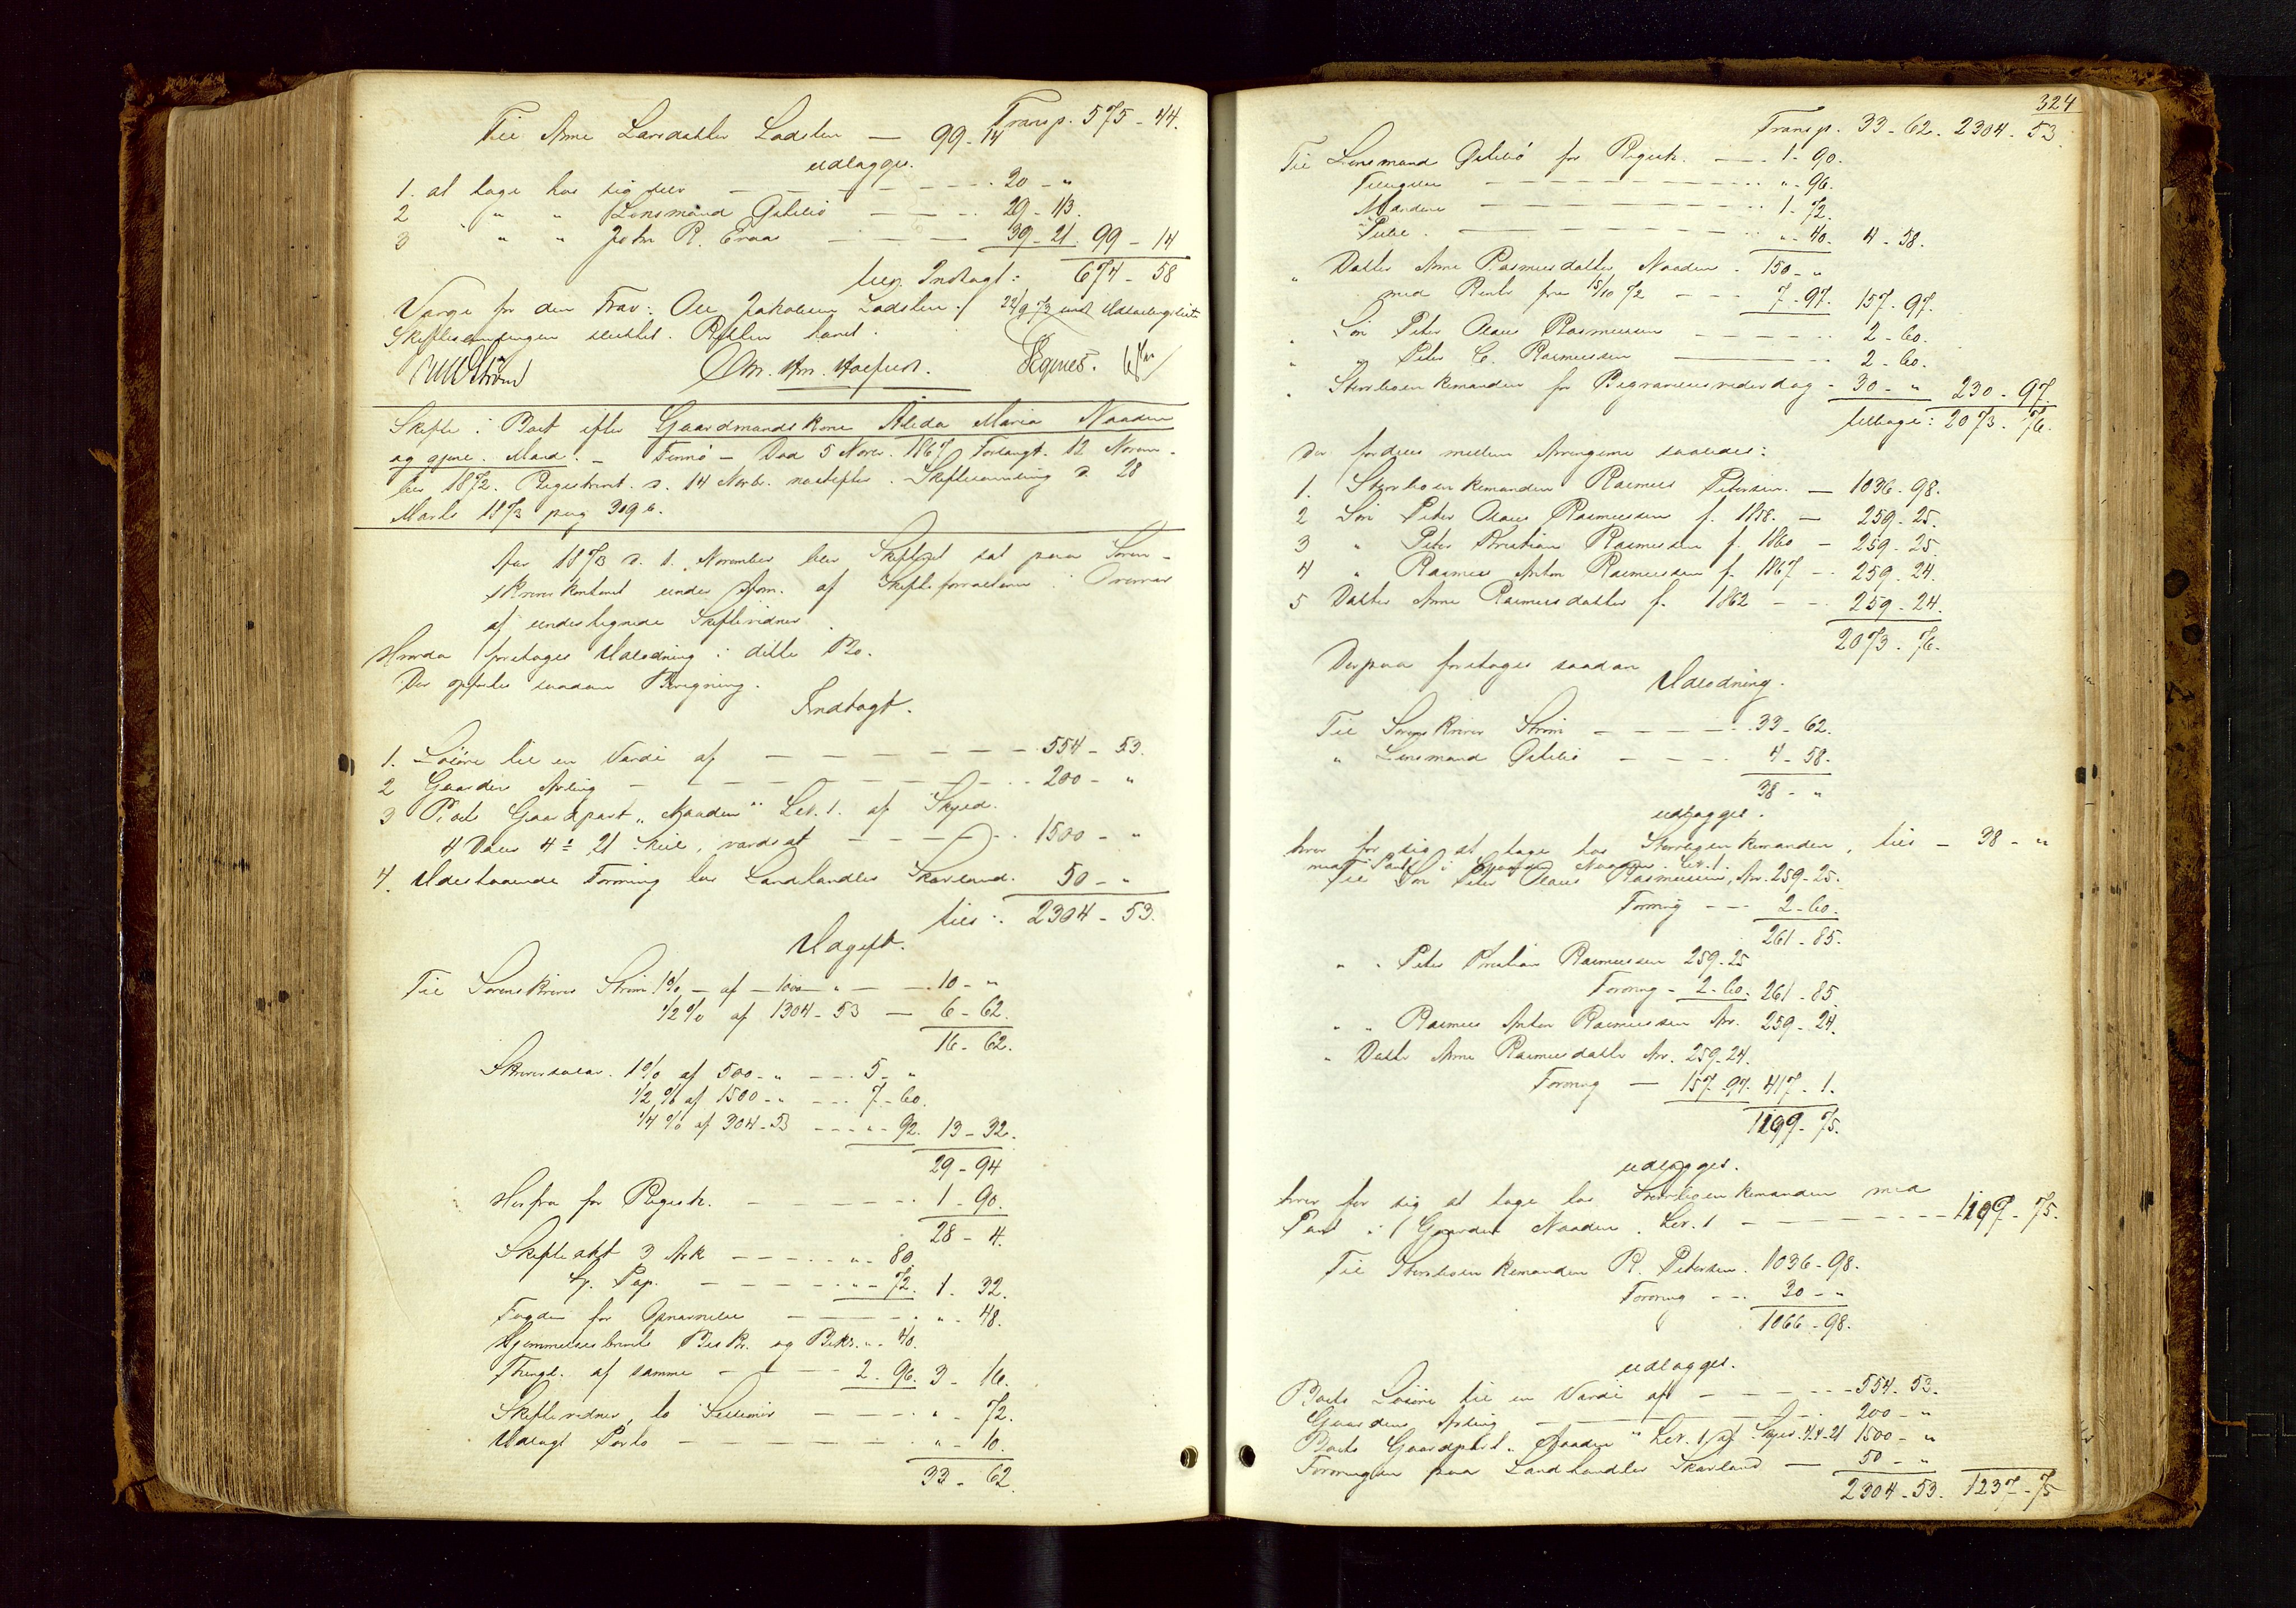 Transp. 575 - 44.
Til Arne Larsdatter Ladsten — 99 - 14
udlægges.
1. at tage hos sig selv — 20 - "
2 " " Lensmand Østebø — 29 - 113.
3 " " John R. Eraa — 39 - 21. 99 - 14
lig Indtægt: 674 - 58
Værge for den Frav: Ole Jakobsen Ladsten. 22/9 73 uds Udlodningsliste
Skiftesamlingen sluttet. Retten hævet.
Strøm
Skifte i Boet efter Gaardmandskone Aleda Maria Naaden
og gjenl. Mand. — Finnø — Død 5 Novbr. 1867. Forlangt. 12 Novem-
ber 1872. Registreret d. 14 Novbr. næstefter. Skiftesamling d. 28
Marts 1873 pag 309 b.
Aar 1873 d. 1. November blev Skiftet sat paa Soren-
skriverkontoret under Adm. af Skifteforvalteren i Overvær
af undertegnede Skiftevidner.
Hvorda foretoges Udlodning i dette Bo.
Der opførtes saadan Beregning.
Indtægt.
1. Løsøre til en Værdi af — 554 - 53.
2 Gaardens Avling — 200 - "
3 Boets Gaardpart "Naaden" Lb. 1. af Skyld.
4 Daler 4 ort 21 Skil, værdsat — 1500 - "
4. Udestaaende Fordring hos Landhandler Skarland. 50 - "
tils: 2304 - 53.
Udgift.
Til Sorenskriver Strøm 1% — af — 1000 - " — 10 - "
1/2 % af 1304 - 53 — 6 - 62.
16 - 62.
Skriversalær. 1% af 500 - " — 5 - "
1/2 % af 1500 - " — 7 - 60.
1/4 % af 304 - 53 — " - 92. 13 - 32.
29 - 94
Herfra for Registr. — 1 - 90.
28 - 4.
Skifteakt 3 Ark — " - 80
St. Pap. — " - 72. 1 - 32.
Fogden for Opnævnelse — " - 48.
Hjemmelsbrevets Beskr. og Bekr. " - 40.
Thingl. af samme — 2 - 96. 3 - 16.
Skiftevidner, to Sessioner — " - 72.
Udlagt Porto — " - 10.
33 - 62.
324
Transp. 33 - 62. 2304 - 53
Til Lensmand Østebø for Registr. — 1 - 90.
Tilsigelse — " - 96.
Vidnerne — 1 - 72.
— " - 40. 4 - 58.
" Datter Arne Rasmusdatter Naaden — 150 - "
med Renter fra 15/10 72 — 7 - 97. 157 - 97.
" Søn Peter Olaus Rasmussen — 2 - 60.
" " Peter C. Rasmussen — 2 - 60.
" Stervboenkemanden for Begravelsesvederlag — 30 - " 230 - 97.
tilbage: 2073 - 76.
Der fordeles mellem Arvingerne saaledes:
1. Stervboenkemanden Rasmus Petersen. — 1036 - 98.
2 Søn Peter Olaus Rasmussen f. 1858. — 259 - 25.
3 " Peter Kristian Rasmussen f. 1860 — 259 - 25.
4 " Rasmus Anton Rasmussen f. 1867 — 259 - 24.
5 Datter Arne Rasmusdatter f. 1862 — 259 - 24.
2073 - 76.
Derpaa foretoges saadan
Udlodning.
Til Sorenskriver Strøm — 33 - 62.
" Lensmand Østebø — 4 - 58.
38 - "
udlægges.
hver for sig at tage hos Stervboenkemanden, tils — 38 - "
med Pant i Gaarden Naaden. Lb. 1.
Til Søn Peter Olaus Rasmussen, Arv. 259 - 25.
Fordring — 2 - 60.
261 - 85.
" " Peter Kristian Rasmussen 259 - 25
Fordring — 2 - 60. 261 - 85
" " Rasmus Anton Rasmussen Arv. 259 - 24.
" Datter Arne Rasmusdatter Arv. 259 - 24.
Fordring — 157 - 97. 417 - 1.
1199 - 75.
udlægges.
hver for sig at tage hos Stervboenkemanden med
Pant i Gaarden Naaden. Lb. 1 — 1199 - 75.
Til Stervboenkemanden R. Petersen. 1036 - 98.
Fordring — 30 - "
1066 - 98.
udlægges.
Boets Løsøre til en Værdi af — 554 - 53.
Gaardens Avling — 200 - "
Boets Gaardpart "Naaden" Lb. 1 af Skyld. 4. 4 - 21 1500 - "
Fordringen paa Landhandler Skarland — 50 - "
2304 - 53. 1237 - 75